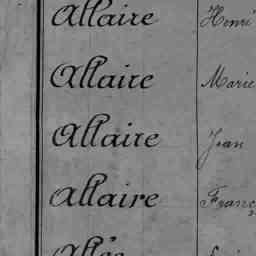 Allaire Henri
Allaire Marie
Allaire Jean
Allaire Franç
Allée